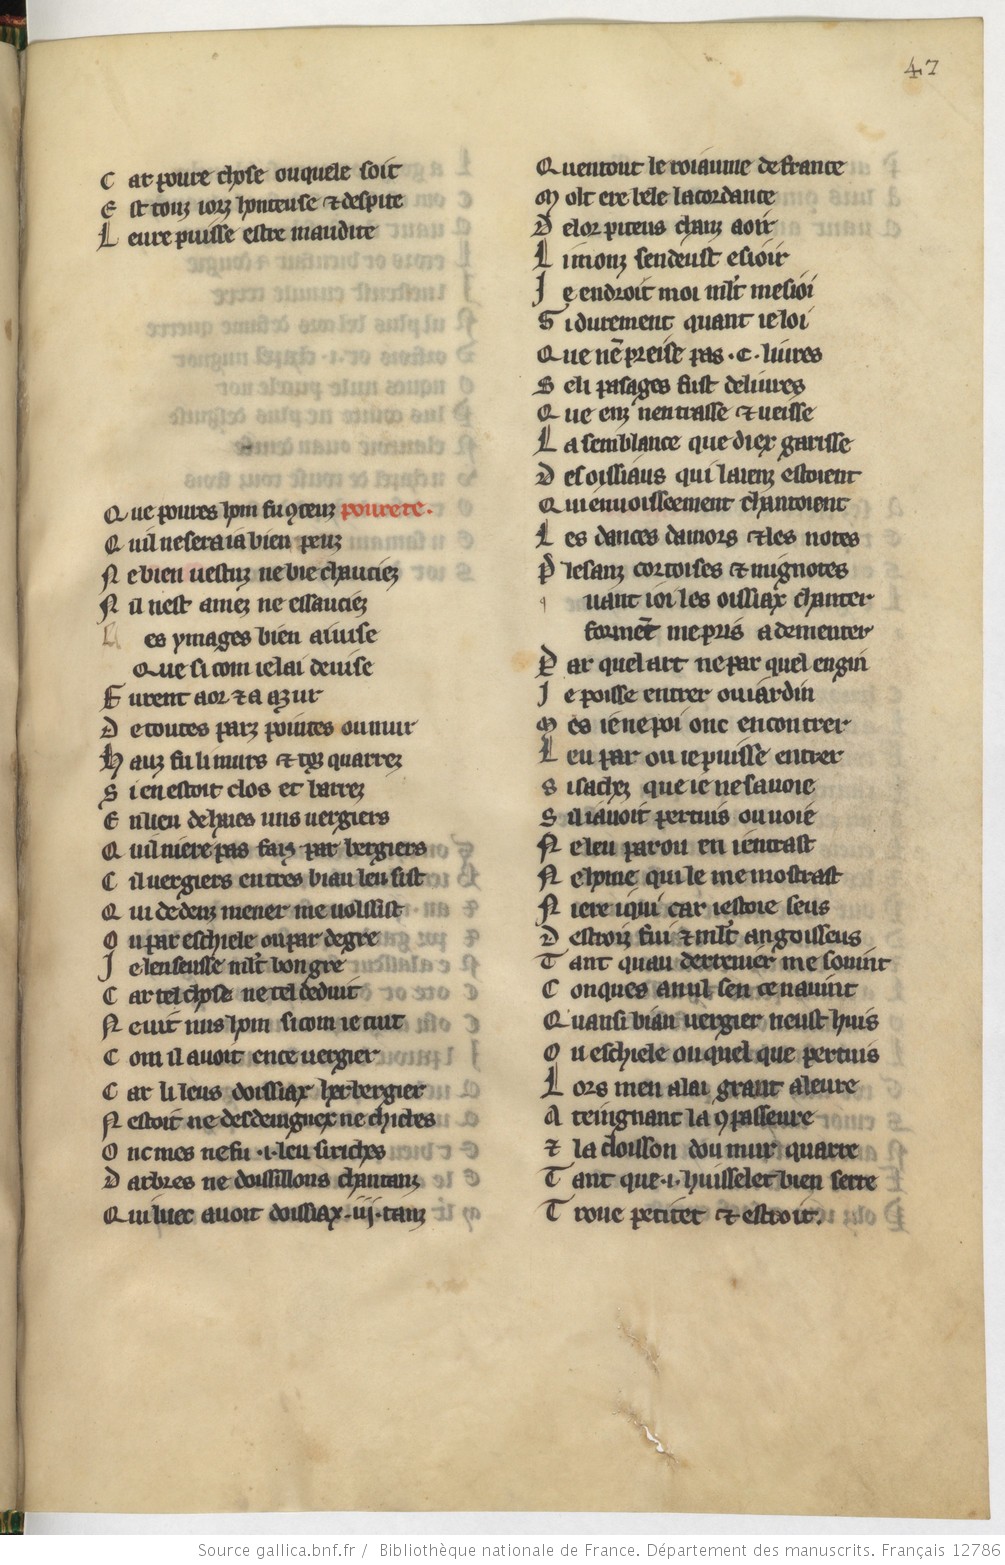 47
Car poure chose ou quele soit
Est touz iorz honteuse & despite
Leure puisse estre maudite
Que poures hom fu 9ceuz pourete.
Quil ne sera ia bien peuz
Ne bien uestuz ne bie chauciez
Nil nest amez ne essauciez
es ymages bien auise
Que si com ie lai deuise
Furent a or & a azur
De toutes parz pointes ou mur
Hauz fu li murs & toz quarrez
Si en estoit clos et barrez
En lieu de haies uns uergiers
Quil niere pas faiz par bergiers
Cil uergiers en tres biau leu sist
Qui dedenz mener me uolsist
Ou par eschiele ou par degre
Ie len seusse mlt bon gre
Car tel chose ne tel deduit
Ne uit nus hom si com ie cuit
Com il auoit en ce uergier
Car li leus doissiax herbergier
Nestoit ne desdeingnex ne chiches
Onc mes ne fu .i. leu si riches
Darbres ne doissillons chantanz
Quiluec auoit doissiax .iij. tanz
Quen tout le roiaume de france
Molt ere bele lacordance
De lor piteus chanz aoir
Li monz sen deust esioir
Ie endroit moi mlt mesioi
Si durement quant ie loi
Que nen preise pas .c. liures
Se li pasages fust deliures
Que enz nentrasse & ueisse
La semblance que diex garisse
Des oissiaus qui laienz estoient
Qui enuoisseement chantoient
Les dances damors & les notes
Plesanz cortoises & mignotes
q uant ioi les oissiax chanter
forment me pris a dementer
Par quel art ne par quel engin
Ie poisse entrer ou iardin
Mes ie ne poi onc encontrer
Leu par ou ie puisse entrer
Si sachez que ie ne sauoie
Sil iauoit pertuis ou uoie
Ne leu par ou en i entrast
Ne home qui le me mostrast
Niere iqui car iestoie seus
Destroiz fui & mlt angoisseus
Tant quau derrenier me souint
Conques a nul sen ce nauint
Quansi biau uergier neust huis
Ou eschiele ou quel que pertuis
Lors men alai grant aleure
Ateingnant la 9passeure
& la cloisson dou mur quarre
Tant que .i. huisselet bien serre
Troue petitet & estroit.
Source gallica.bnf.fr / Bibliothèque nationale de France. Département des manuscrits. Français 12786